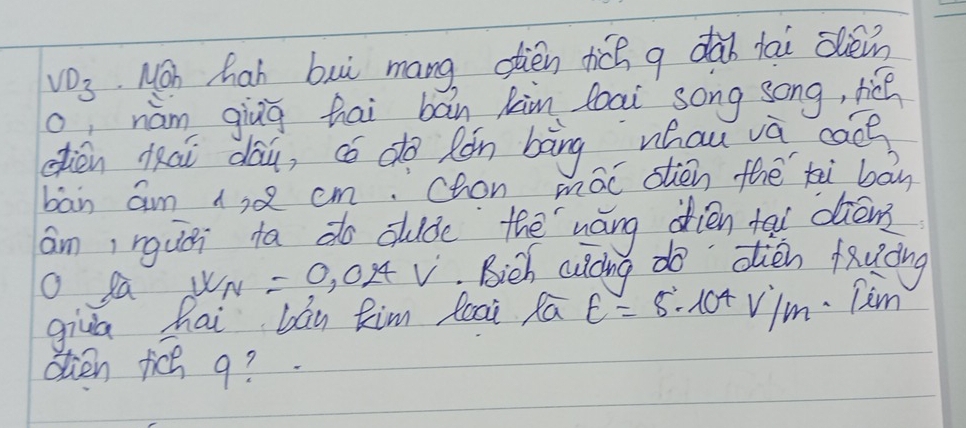 VD3. Một hạt bụi mang điện tích q đặt tại điểm
O, nằm giữa hai bản kim loại song song, tích
điện trái dấu, có độ lớn bằng nhau và cách
bản âm 1,2 cm. Chọn mốc điện thế tại bản
âm, người ta đo được thế năng điện tại điểm
O là WN = 0,024 V. Biết cường độ điện trường
giữa hai bản kim loại là E = 5.104 V/m. Tìm
điện tích q?.